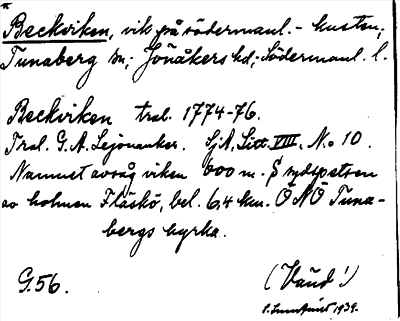 Beckviken, vik på södermanl.-kusten;
Tunaberg sn; Jönåkers hd; Södermanl. l.
Beckviken tral. 1774-76.
Tral. G. A. Lejonanker. SjA, Litt. VIII, No 10.
Namnet avsåg viken 600 m. S sydspetsen
av holmen Fläskö, bel. 6,4 km. ÖNÖ Tuna-
bergs kyrka.
G.56. (Vänd!)
1939.